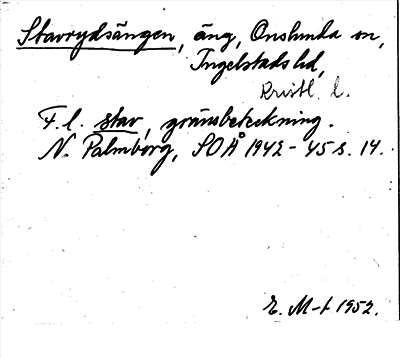 Stavrydsängen, äng, Onslunda sn,
Ingelstads hd,
Krist. l.
F. l. stav, gränsbeteckning.
N. Palmborg, SOÅ 1942-45 s. 14.
E. M-t 1952.